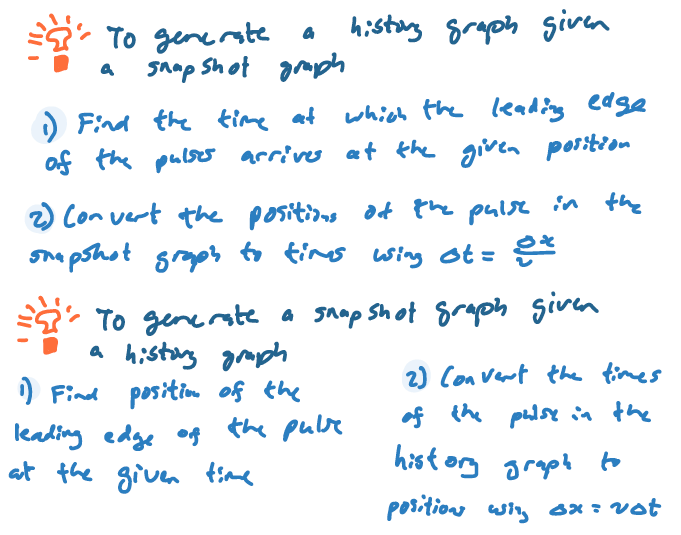 To generate a history graph given
a snapshot graph
1) Find the time at which the leading edge
of the pulses arrives at the given position
2) Convert the positions of the pulse in the
snapshot graph to times using Δt = Δx/v
To generate a snapshot graph given
a history graph
1) Find position of the
leading edge of the pulse
at the given time
2) Convert the times
of the pulse in the
history graph to
positions using Δx = vΔt